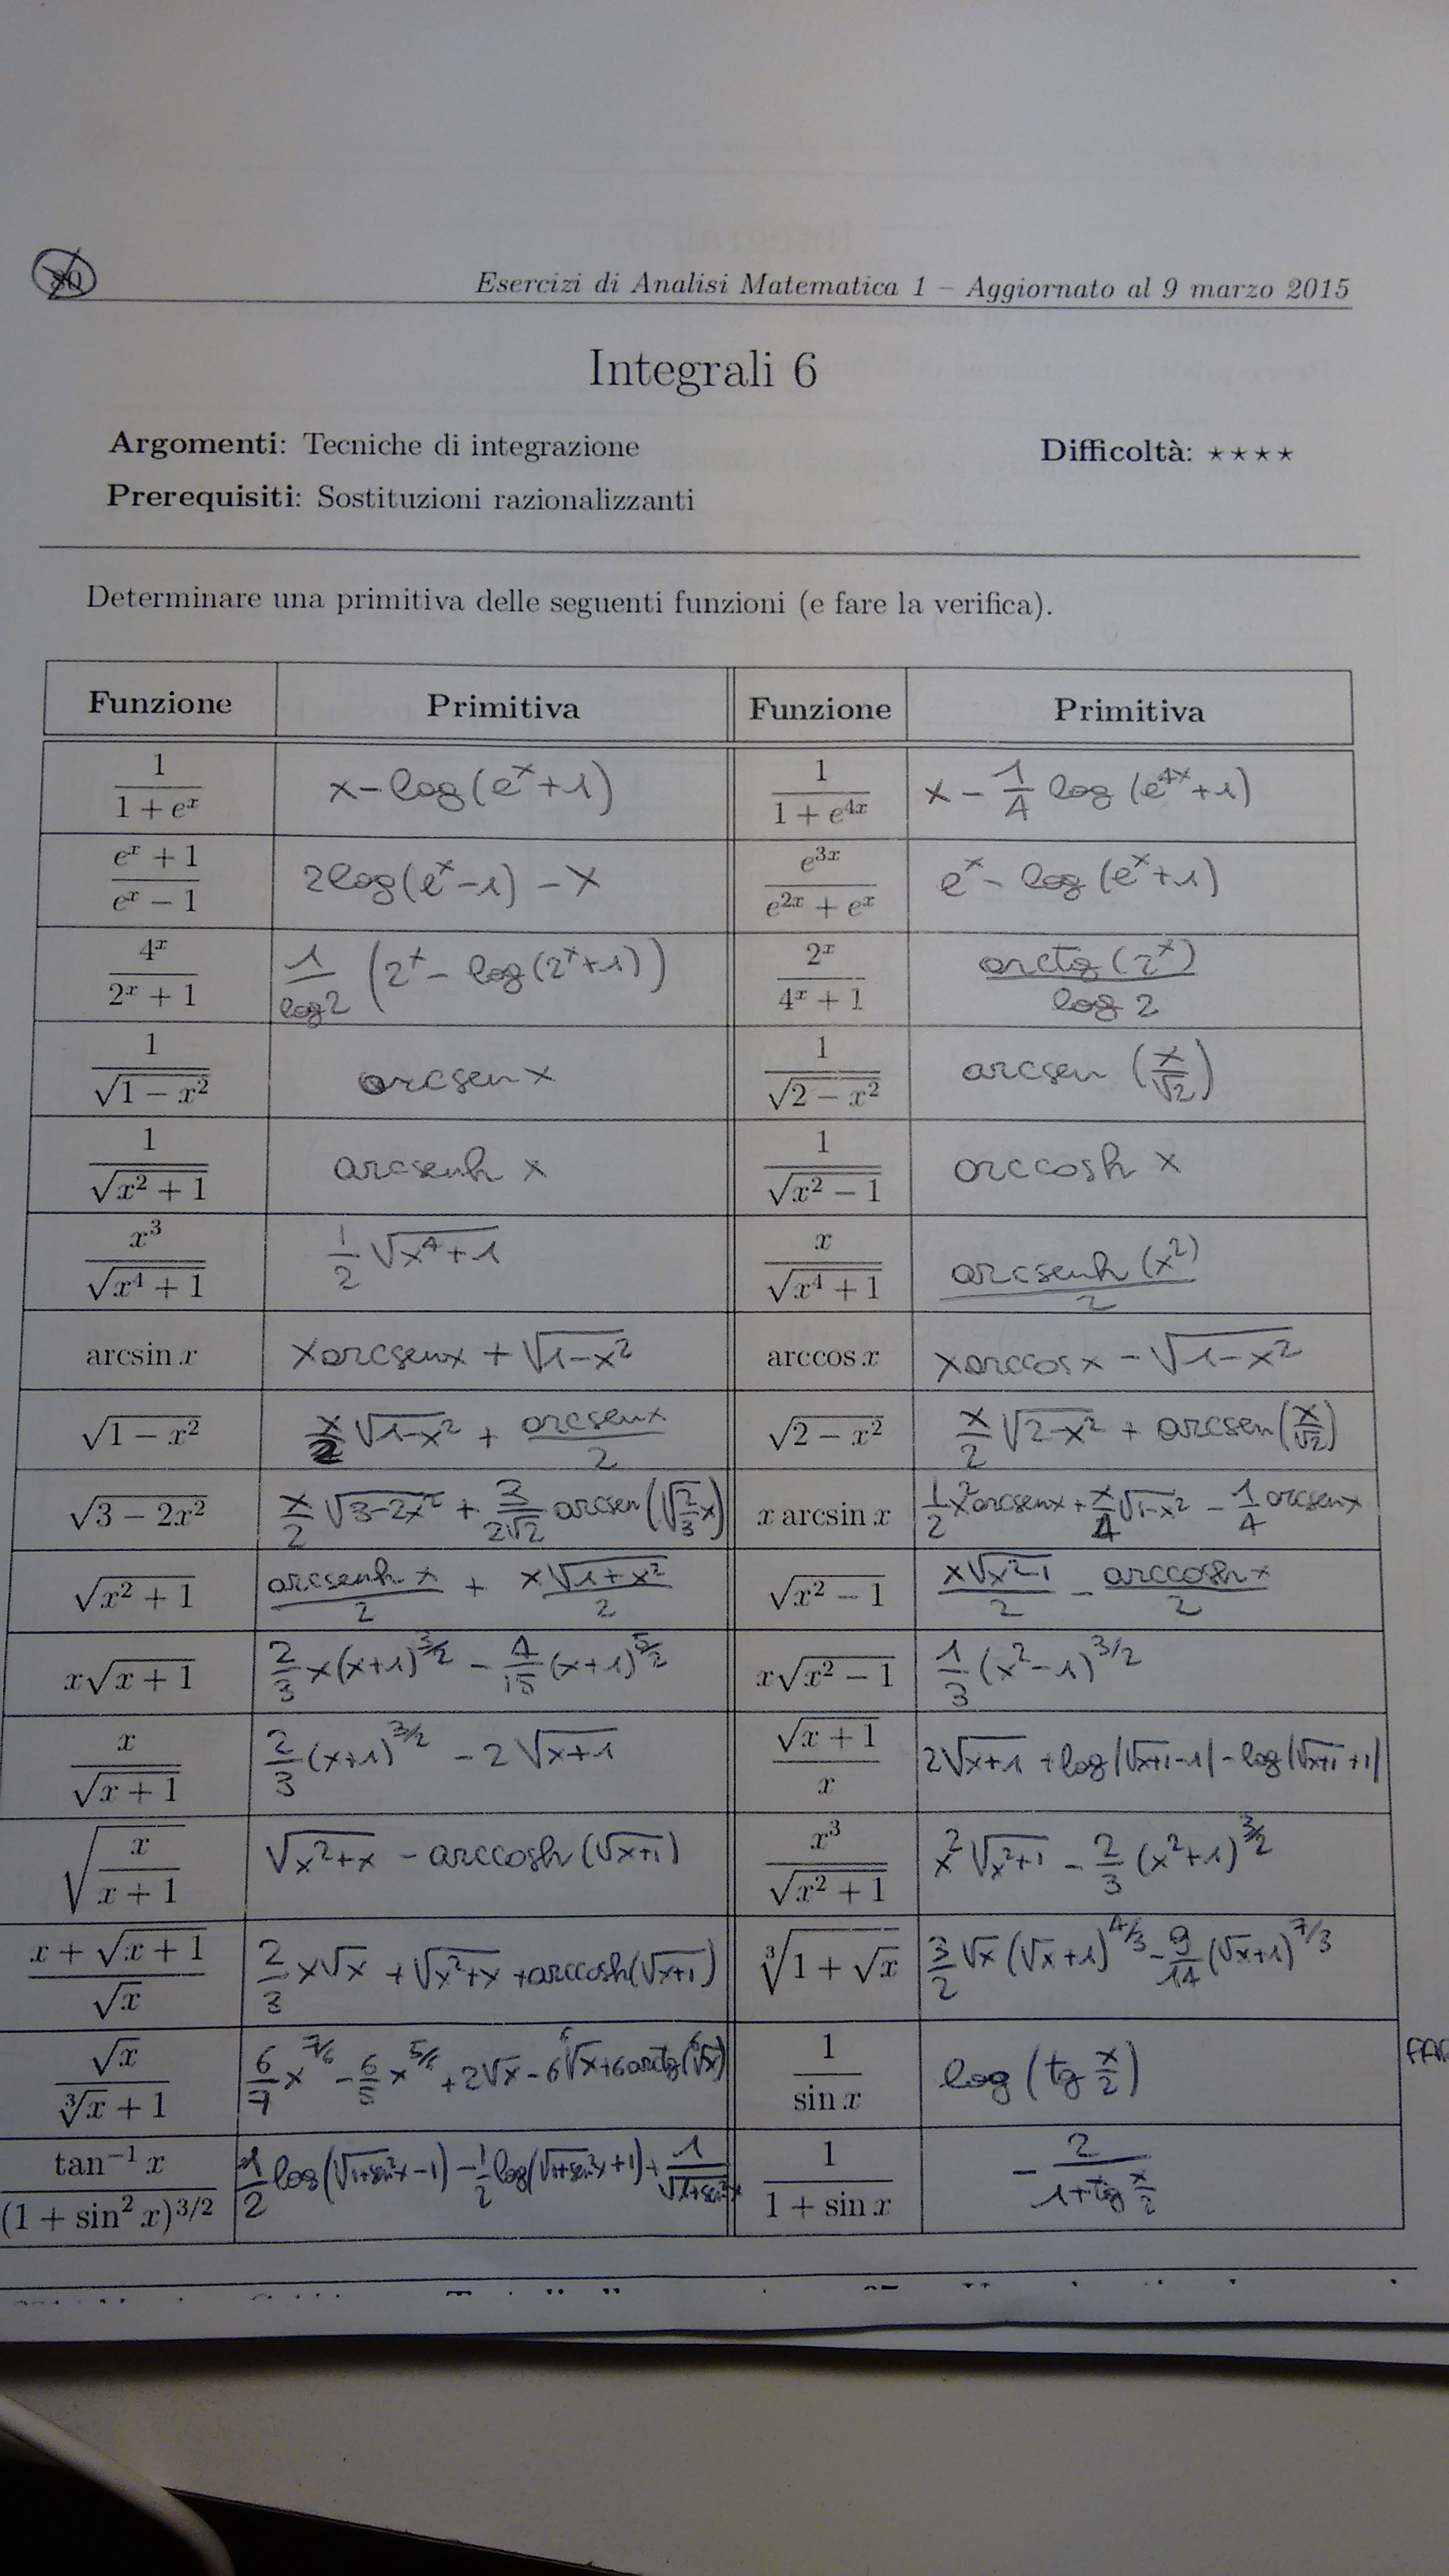 80
Esercizi di Analisi Matematica 1 – Aggiornato al 9 marzo 2015
Integrali 6
Argomenti: Tecniche di integrazione Difficoltà: ⋆⋆⋆⋆
Prerequisiti: Sostituzioni razionalizzanti
Determinare una primitiva delle seguenti funzioni (e fare la verifica).
Funzione Primitiva Funzione Primitiva
1/(1 + e^x) x − log(e^x + 1) 1/(1 + e^{4x}) x − 1/4 log(e^{4x} + 1)
(e^x + 1)/(e^x − 1) 2log(e^x − 1) − x e^{3x}/(e^{2x} + e^x) e^x − log(e^x + 1)
4^x/(2^x + 1) 1/log2 (2^x − log(2^x + 1)) 2^x/(4^x + 1) arctg(2^x)/log 2
1/√(1 − x²) arcsen x 1/√(2 − x²) arcsen (x/√2)
1/√(x² + 1) arcsenh x 1/√(x² − 1) arccosh x
x³/√(x⁴ + 1) 1/2 √(x⁴ + 1) x/√(x⁴ + 1) arcsenh(x²)/2
arcsin x x arcsenx + √(1−x²) arccos x x arccos x − √(1−x²)
√(1 − x²) x/2 √(1−x²) + arcsenx/2 √(2 − x²) x/2 √(2−x²) + arcsen(x/√2)
√(3 − 2x²) x/2 √(3−2x²) + 3/(2√2) arcsen(√(2/3) x) x arcsin x 1/2 x² arcsenx + x/4 √(1−x²) − 1/4 arcsenx
√(x² + 1) arcsenh x/2 + x√(1+x²)/2 √(x² − 1) x√(x²−1)/2 − arccosh x/2
x√(x + 1) 2/3 x(x+1)^{3/2} − 4/15 (x+1)^{5/2} x√(x² − 1) 1/3 (x²−1)^{3/2}
x/√(x + 1) 2/3 (x+1)^{3/2} − 2√(x+1) √(x + 1)/x 2√(x+1) + log|√(x+1)−1| − log|√(x+1)+1|
√(x/(x + 1)) √(x²+x) − arccosh(√(x+1)) x³/√(x² + 1) x²√(x²+1) − 2/3 (x²+1)^{3/2}
(x + √(x + 1))/√x 2/3 x√x + √(x²+x) + arccosh(√(x+1)) ∛(1 + √x) 3/2 √x (√x+1)^{4/3} − 9/14 (√x+1)^{7/3}
√x/(∛x + 1) 6/7 x^{7/6} − 6/5 x^{5/6} + 2√x − 6 ⁶√x + 6arctg(⁶√x) 1/sin x log(tg x/2)
tan⁻¹ x/(1 + sin² x)^{3/2} 1/2 log(√(1+sen²x) − 1) − 1/2 log(√(1+sen²x) + 1) + 1/√(1+sen²x) 1/(1 + sin x) − 2/(1+tg x/2)